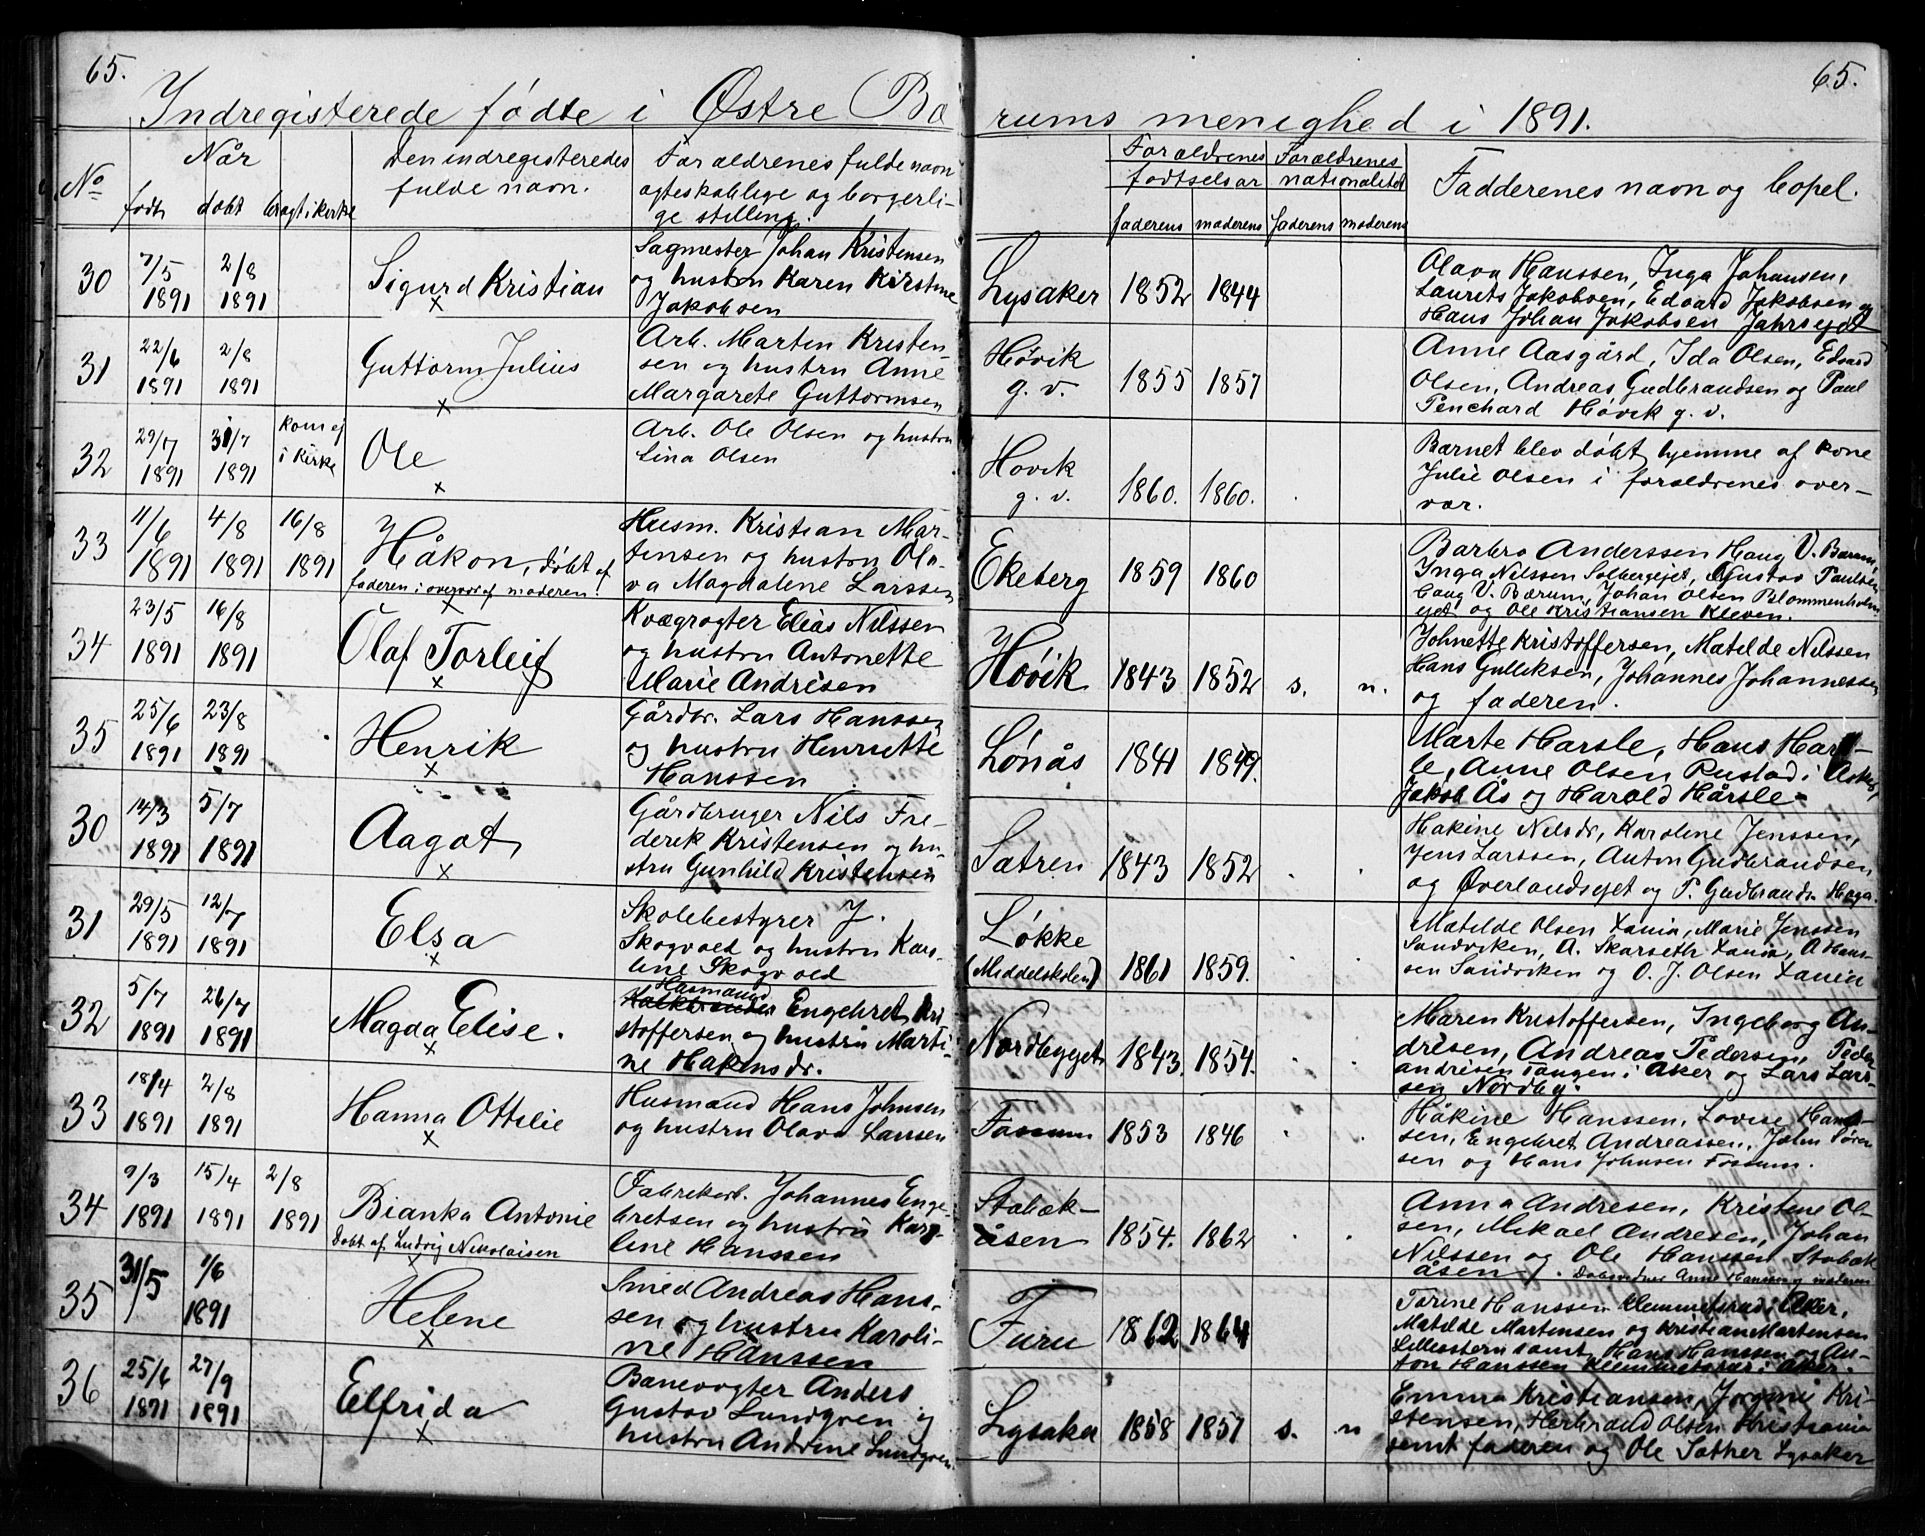 65.
65.
Indregisterede fødte i Østre Bærums menighed i 1891.
No
Når
født døbt bragt i kirke
Den indregisteredes
fulde navn.
Forældrenes fulde navn
ægteskablige og borgerli-
ge stilling.
Forældrenes
fødtselsår
faderens moderens
Forældrenes
nationalitet
faderens moderens
Faddernes navn og bopel.
30
7/5 2/8
1891 1891
Sigurd Kristian
x
Sagmester Johan Kristensen
og hustru Karen Kirstine
Jakobsen
Lysaker 1852 1844
Olava Hanssen, Inga Johansen,
Laurets Jakobsen, Edvard Jakobsen og
Hans Johan Jakobsen Jahrsejet
31
22/6 2/8
1891 1891
Guttorm Julius
x
Arb. Martin Kristen-
sen og hustru Anne
Margarete Guttormsen
Høvik
g. v.
1855 1857
Anne Aasgård, Ida Olsen, Edvard
Olsen, Andreas Gudbrandsen og Paul
Penchard Høvik g. v.
32
29/7 31/7 kom ej
1891 1891 i kirke
Ole
x
Arb. Ole Olsen og hustru
Lina Olsen
Høvik
g. v.
1860. 1860.
Barnet blev døbt hjemme af kone
Julie Olsen i forældrenes over-
vær.
33
11/6 4/8 16/8
1891 1891 1891
Håkon, døbt af
faderen i overvær af moderen.
x
Husm. Kristian Mar-
tinsen og hustru Ola-
va Magdalene Larssen
Ekeberg 1859 1860
Barbro Anderssen Haug V. Bærum,
Inga Nilssen Solbergejet, Gustav Paulsen
Haug V. Bærum, Johan Olsen Blommenholm
ejet og Ole Kristiansen Kleven.
34
23/5 16/8
1891 1891
Olaf Torleif
x
Kvægrøgter Elias Nilssen
og hustru Antonette
Marie Andrésen
Høvik 1843 1852 s. n.
Johnette Kristoffersen, Matilde Nilssen
Hans Gulliksen, Johannes Johannessen
og faderen.
35
25/6 23/8
1891 1891
Henrik
x
Gårdbr. Lars Hanssen
og hustru Henriette
Hanssen
Lønås 1841 1849.
Marte Harsle, Hans Hars-
le, Anne Olsen Rustad i Asker,
Jakob Ås og Harald Hårsle
30
14/3 5/7
1891 1891
Aagot
x
Gårdbruger Nils Fre-
derek Kristensen og hu-
stru Gunhild Kristensen
Sætren 1843 1852
Hakine Nilsdr, Karoline Jenssen,
Jens Larssen, Anton Gudbrandsen
og Øverlandsejet og P. Gudbrands. Haga.
31
29/5 12/7
1891 1891
Elsa
x
Skolebestyrer J.
Skogvold og hustru Karo-
line Skogvold
Løkke
(Middelskolen) 1861 1859.
Matilde Olsen Xania, Marie Jenssen
Sandviken, A. Skarseth Xania, A Hans-
sen Sandviken og O. J. Olsen Xania
32
5/7 26/7
1891 1891
Magda Elise.
x
Husmand
Engebret Kri
stoffersen og hustru Marti-
ne Hakensdr.
Nordbyget 1843. 1854.
Maren Kristoffersen, Ingeborg An-
drisen, Andreas Pedersen, Peder
Andrisen Tangen i Aker og Lars Lars-
sen Nordby.
33
18/4 2/8
1891 1891
Hanna Ottilie
x
Husmand Hans Johnsen
og hustru Olava Larssen
Fossum 1853 1846
Håkine Hanssen, Lovise Hans-
sen, Engebret Andreassen, John Søren
sen og Hans Johnsen Fossum.
34
9/3 15/4 2/8
1891 1891 1891
Bianka Antonie
Døbt af Ludvig Nikolaisen
x
Fabrikarb. Johannes Enge-
bretsen og hustru Karo-
line Hanssen
Stabæk-
åsen 1854. 1862
Anna Andresen, Kristine Ol-
sen, Mikael Andresen, Johan
Nilssen og Ole Hanssen Stabæk
åsen. Dåbsvidner Anne Hanssen og moderen
35
31/5 1/6
1891
Helene
x
Smed Andreas Hans-
sen og hustru Karoli-
ne Hanssen
Furu 1862 1864
Torine Hanssen Klemmetsrud i Aker,
Matilde Martensen og Kristian Martensen
Lillestern samt Hans Hanssen og An-
ton Hanssen Klemmetsrud i Aker.
36
25/6 27/9
1891 1891
Elfrida
x
Banevogter Anders
Gustav Lundgren og
hustru Andrine Lundgren.
Lysaker 1858 1857 s. n
Emma Kristiansen, Jørgine Kri-
stensen, Herbrand Olsen Kristiania
samt faderen og Ole Sæther Lysaker